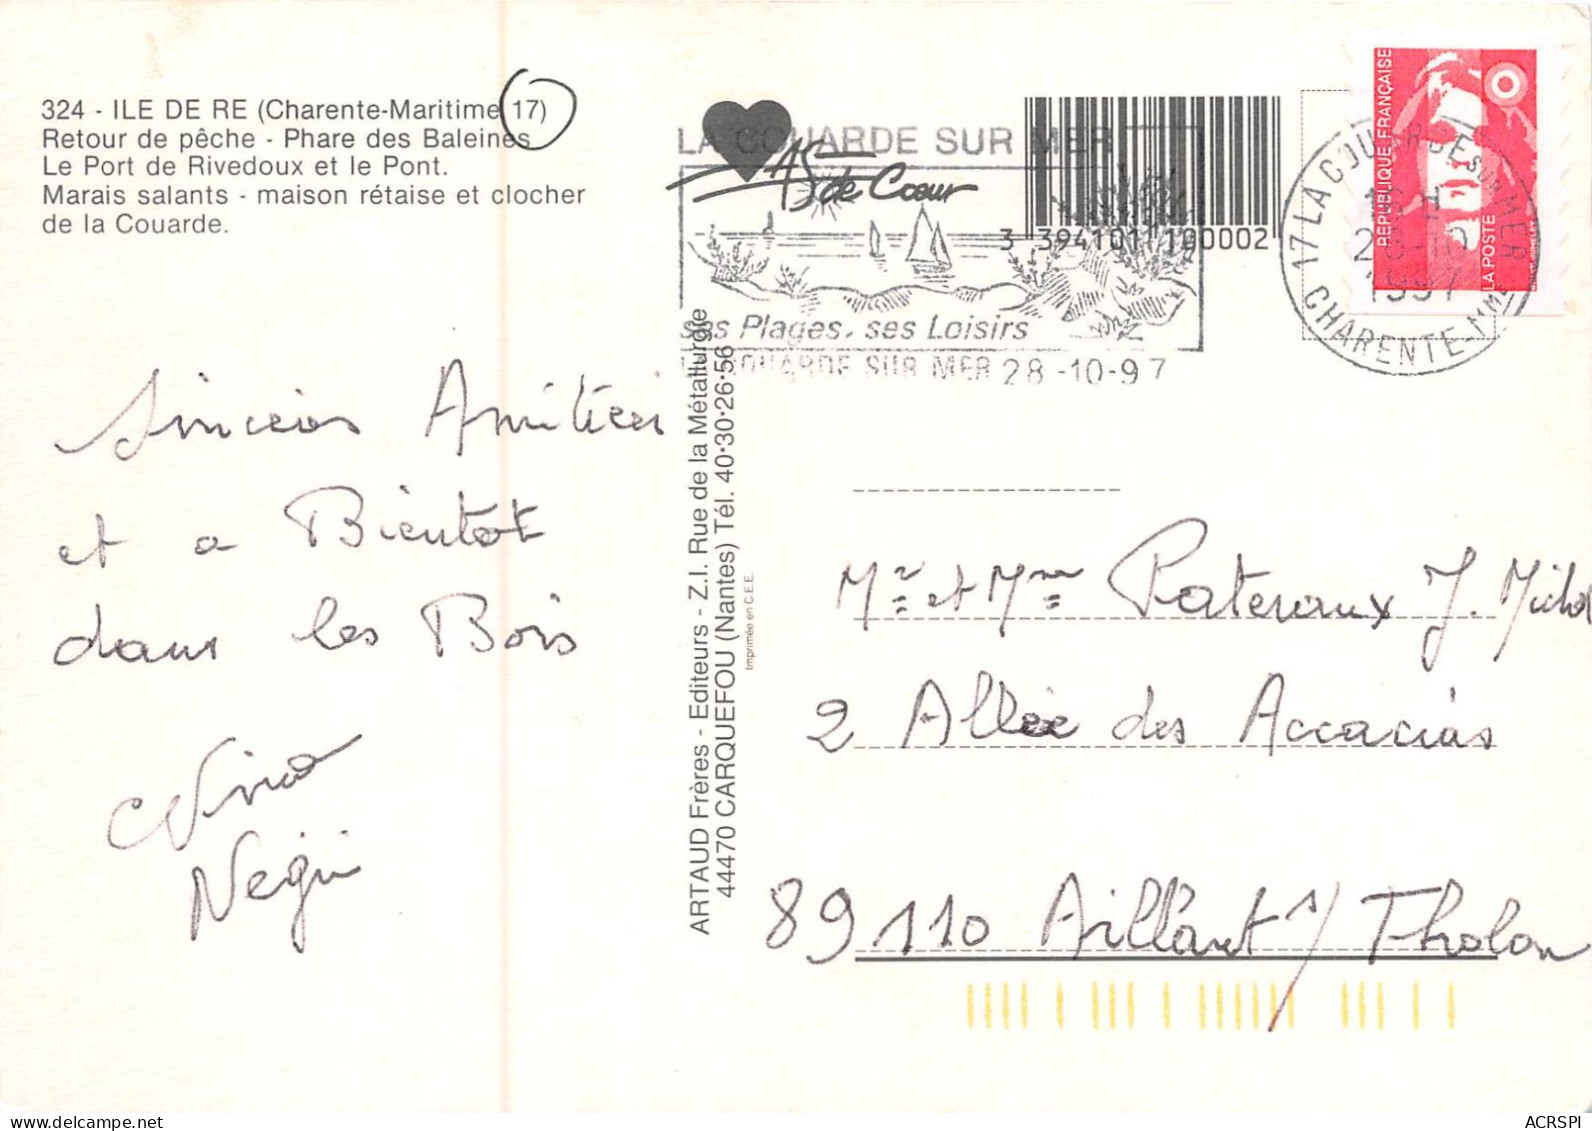 324 - ILE DE RE (Charente-Maritime 17)
Retour de pêche - Phare des Baleines
Le Port de Rivedoux et le Pont.
Marais salants - maison rétaise et clocher
de la Couarde.
Sincères Amitiés
et a Bientot
dans les Bois
Nino
LA COUARDE SUR MER
AS de Cœur
ses Plages, ses Loisirs
LA COUARDE SUR MER 28-10-97
3 394101 100002
ARTAUD Frères - Editeurs - Z.I. Rue de la Métallurgie
44470 CARQUEFOU (Nantes) Tél. 40·30·26·56
Imprimée en C.E.E.
REPUBLIQUE FRANÇAISE
LA POSTE
17 LA COUARDE SUR MER
1997
CHARENTE-MME
Mr et Mme Pateraux J. Michel
2 Allée des Accacias
89110 Aillant s/ Tholon
ACRSPI